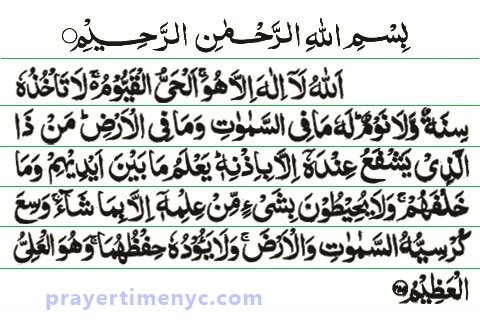 بِسْمِ اللهِ الرَّحْمٰنِ الرَّحِيْمِ
اَللهُ لَآ اِلٰهَ اِلَّا هُوَۚ اَلْحَيُّ الْقَيُّوْمُ ەۚ لَا تَاْخُذُهٗ
سِنَةٌ وَّلَا نَوْمٌؕ لَهٗ مَا فِى السَّمٰوٰتِ وَمَا فِى الْاَرْضِؕ مَنْ ذَا
الَّذِىْ يَشْفَعُ عِنْدَهٗٓ اِلَّا بِاِذْنِهٖؕ يَعْلَمُ مَا بَيْنَ اَيْدِيْهِمْ وَمَا
خَلْفَهُمْۚ وَلَا يُحِيْطُوْنَ بِشَىْءٍ مِّنْ عِلْمِهٖٓ اِلَّا بِمَا شَآءَۚ وَسِعَ
كُرْسِيُّهُ السَّمٰوٰتِ وَالْاَرْضَۚ وَلَا يَـُٔوْدُهٗ حِفْظُهُمَاۚ وَهُوَ الْعَلِىُّ
الْعَظِيْمُ ﴿۲۵۵﴾
prayertimenyc.com